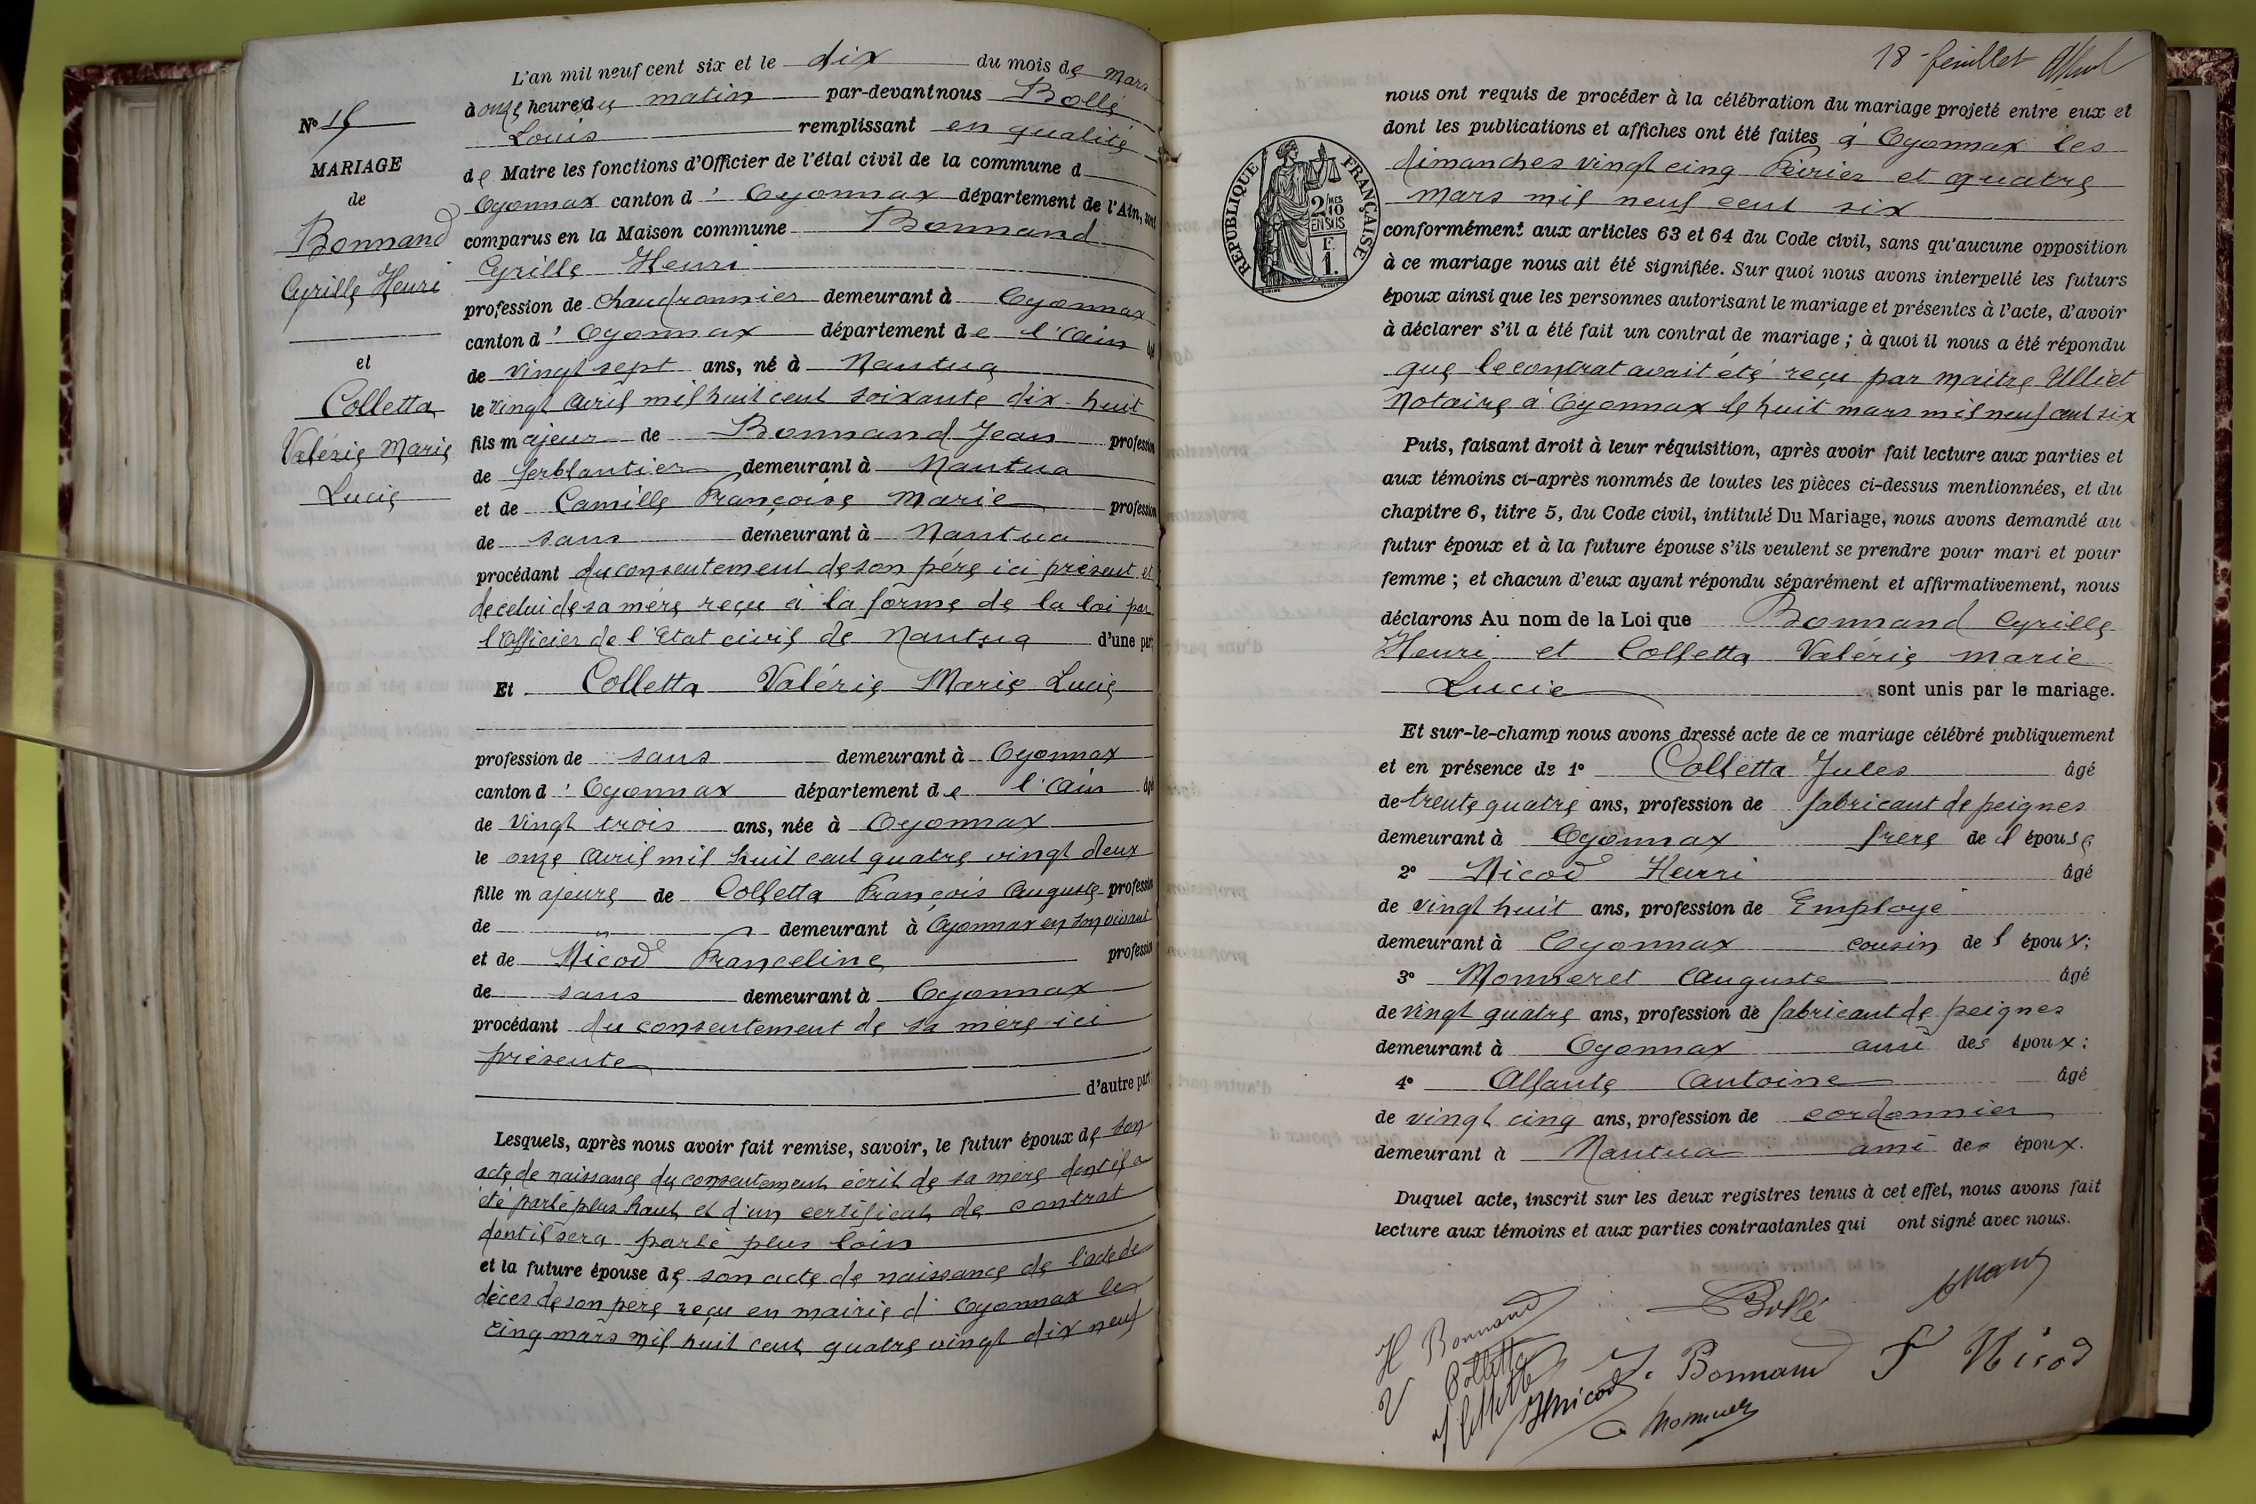 L'an mil neuf cent six et le dix du mois de Mars
à onze heures du matin par-devant nous Bollé
Louis remplissant en qualité
de Maire les fonctions d'Officier de l'état civil de la commune d
Oyonnax canton d' Oyonnax département de l'Ain, sont
comparus en la Maison commune Bonnand
Cyrille Henri
profession de Chaudronnier demeurant à Oyonnax
canton d' Oyonnax département de l'Ain âgé
de vingt sept ans, né à Nantua
le vingt Avril mil huit cent soixante dix-huit
fils majeur de Bonnand Jean profession
de ferblantier demeurant à Nantua
et de Camille Françoise Marie profession
de sans demeurant à Nantua
procédant du consentement de son père ici présent et
de celui de sa mère reçu à la forme de la loi par
l'officier de l'Etat civil de Nantua d'une part,
Et Colletta Valérie Marie Lucie
profession de sans demeurant à Oyonnax
canton d' Oyonnax département de l'Ain âgé
de vingt trois ans, née à Oyonnax
le onze Avril mil huit cent quatre vingt deux
fille majeure de Colletta François Auguste profession
de demeurant à Oyonnax en son vivant
et de Nicod Franceline profession
de sans demeurant à Oyonnax
procédant du consentement de sa mère ici
présente
d'autre part;
Lesquels, après nous avoir fait remise, savoir, le futur époux de son
acte de naissance du consentement écrit de sa mère dont il a
été parlé plus haut et d'un certificat de contrat
dont il sera parlé plus loin
et la future épouse de son acte de naissance de l'acte de
décès de son père reçu en mairie d'Oyonnax le
cinq mars mil huit cent quatre vingt dix neuf
No 15
MARIAGE
de
Bonnand
Cyrille Henri
et
Colletta
Valérie Marie
Lucie
18 - feuillet
nous ont requis de procéder à la célébration du mariage projeté entre eux et
dont les publications et affiches ont été faites à Oyonnax les
dimanches vingt cinq Février et quatre
mars mil neuf cent six
conformément aux articles 63 et 64 du Code civil, sans qu'aucune opposition
à ce mariage nous ait été signifiée. Sur quoi nous avons interpellé les futurs
époux ainsi que les personnes autorisant le mariage et présentes à l'acte, d'avoir
à déclarer s'il a été fait un contrat de mariage ; à quoi il nous a été répondu
que le contrat avait été reçu par Maitre Ulliet
Notaire à Oyonnax le huit mars mil neuf cent six
Puis, faisant droit à leur réquisition, après avoir fait lecture aux parties et
aux témoins ci-après nommés de toutes les pièces ci-dessus mentionnées, et du
chapitre 6, titre 5, du Code civil, intitulé Du Mariage, nous avons demandé au
futur époux et à la future épouse s'ils veulent se prendre pour mari et pour
femme ; et chacun d'eux ayant répondu séparément et affirmativement, nous
déclarons Au nom de la Loi que Bonnand Cyrille
Henri et Colletta Valérie Marie
Lucie sont unis par le mariage.
Et sur-le-champ nous avons dressé acte de ce mariage célébré publiquement
et en présence de 1° Colletta Jules âgé
de trente quatre ans, profession de fabricant de peignes
demeurant à Oyonnax frere de l'épouse
2° Nicod Henri âgé
de vingt huit ans, profession de Employé
demeurant à Oyonnax cousin de l'époux;
3° Monneret Auguste âgé
de vingt quatre ans, profession de fabricant de peignes
demeurant à Oyonnax ami des époux;
4° Alfante Antoine âgé
de vingt cinq ans, profession de cordonnier
demeurant à Nantua ami des époux.
Duquel acte, inscrit sur les deux registres tenus à cet effet, nous avons fait
lecture aux témoins et aux parties contractantes qui ont signé avec nous.
RÉPUBLIQUE FRANÇAISE
2 MES 10
EN SUS
F.
1.
Bollé
H Bonnand
V Colletta
J. Bonnand
F Nicod
J Colletta
H Nicod